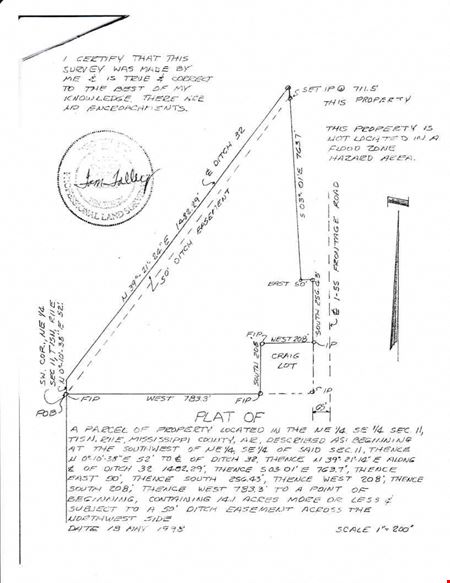 I CERTIFY THAT THIS
SURVEY WAS MADE BY
ME & IS TRUE & CORRECT
TO THE BEST OF MY
KNOWLEDGE. THERE ARE
NO ENCROACHMENTS.
SET IP @ 711.5'
THIS PROPERTY
THIS PROPERTY IS
NOT LOCATED IN A
FLOOD ZONE
HAZARD AREA.
PROFESSIONAL LAND
N 39°-21'-24" E 1482.29'
℄ DITCH 32
50' DITCH EASEMENT
S 03°-01' E 763.7'
EAST 50'
SOUTH 256.43'
℄ I-55 FRONTAGE ROAD
SW. COR., NE 1/4
SEC 11, T15N, R11E
N 0°-10'-38" E 52'
FIP
WEST 208'
IP
SOUTH 208'
CRAIG
LOT
POB
FIP
WEST 783.3'
FIP
IP
PLAT OF
A PARCEL OF PROPERTY LOCATED IN THE NE 1/4 SE 1/4 SEC. 11,
T15N, R11E, MISSISSIPPI COUNTY, AR., DESCRIBED AS: BEGINNING
AT THE SOUTHWEST OF NE 1/4, SE 1/4 OF SAID SEC. 11, THENCE
N 0°-10'-38" E 52' TO ℄ OF DITCH 32, THENCE N 39°-21'-14" E ALONG
℄ OF DITCH 32 1482.29', THENCE S 03°-01' E 763.7', THENCE
EAST 50', THENCE SOUTH 256.43', THENCE WEST 208', THENCE
SOUTH 208', THENCE WEST 783.3' TO A POINT OF
BEGINNING, CONTAINING 14.1 ACRES MORE OR LESS &
SUBJECT TO A 50' DITCH EASEMENT ACROSS THE
NORTHWEST SIDE
DATE 13 MAY 1998
SCALE 1"=200'